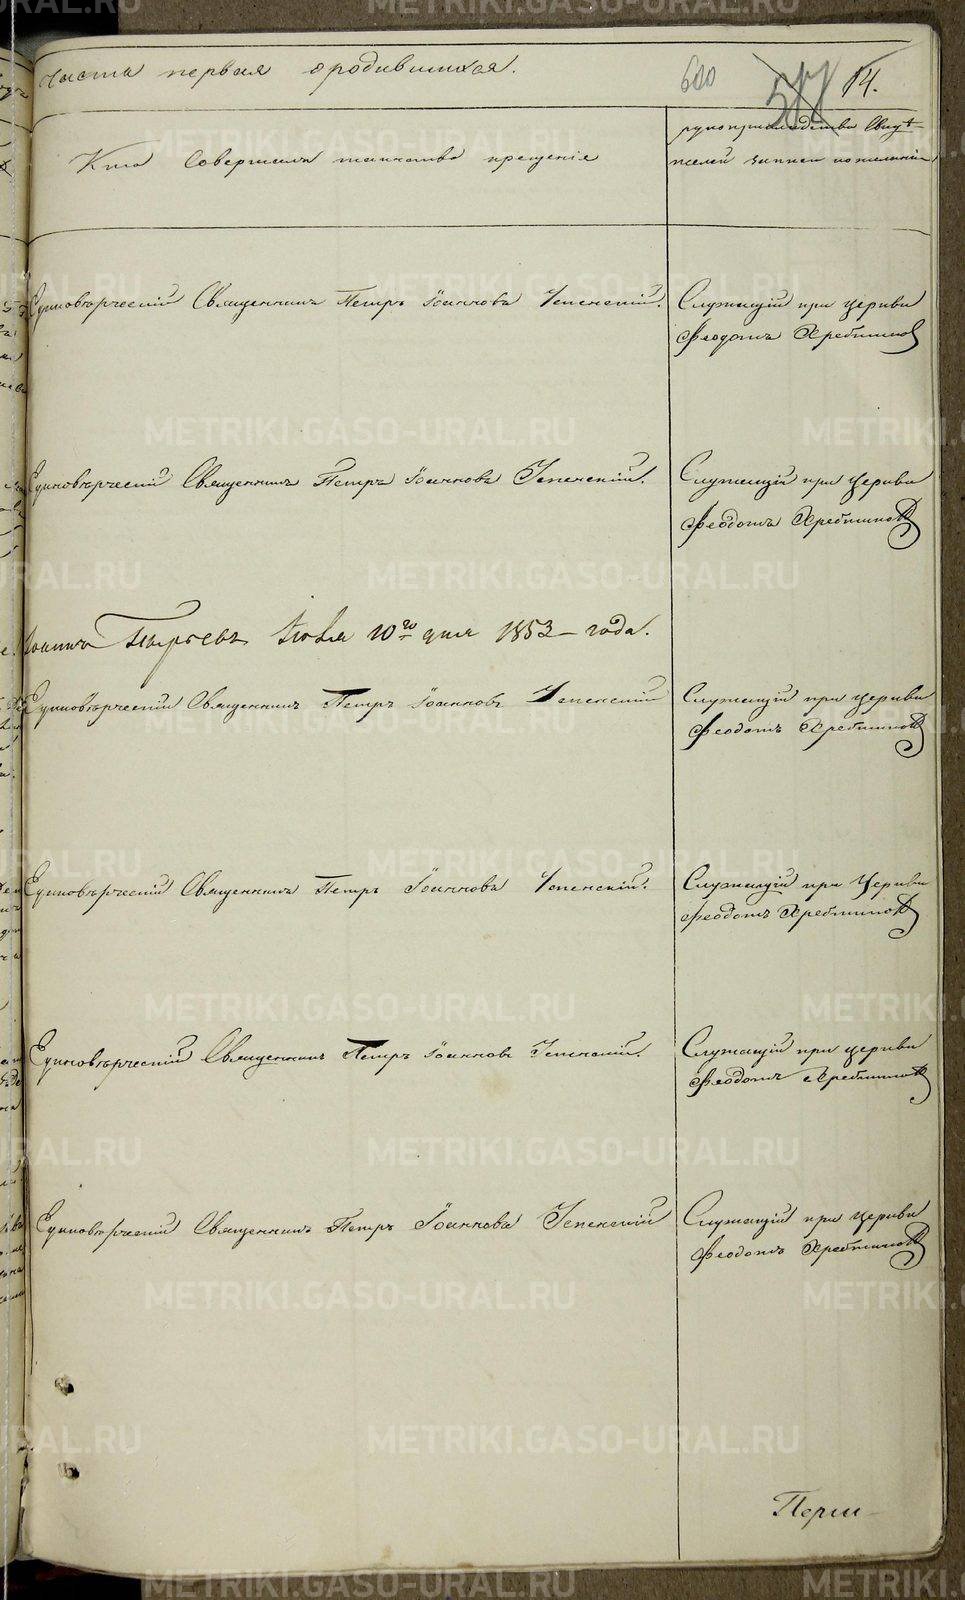 часть первая о родившихся.
600 577 14.
Кто совершалъ таинство крещенія
рукоприкладство свидѣ-
телей записи по желанію
Единовѣрческій Священникъ Петръ Іоанновъ Успенскій.
Служащій при церкви
Феодотъ Хребтиковъ
Единовѣрческій Священникъ Петръ Іоанновъ Успенскій.
Служащій при церкви
Феодотъ Хребтиковъ
Іоаннъ Пырьевъ Іюля 10го дня 1853 года.
Единовѣрческій Священникъ Петръ Іоанновъ Успенскій
Служащій при церкви
Феодотъ Хребтиковъ
Единовѣрческій Священникъ Петръ Іоанновъ Успенскій.
Служащій при Церкви
Феодотъ Хребтиковъ
Единовѣрческій Священникъ Петръ Іоанновъ Успенскій.
Служащій при церкви
Феодотъ Хребтиковъ
Единовѣрческій Священникъ Петръ Іоанновъ Успенскій
Служащій при церкви
Феодотъ Хребтиковъ
METRIKI.GASO-URAL.RU